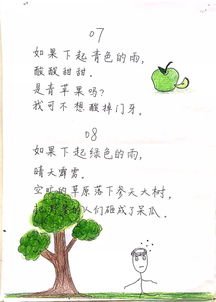 07
如果下起青色的雨,
酸酸甜甜.
是青苹果吗?
我可不想酸掉门牙.
08
如果下起绿色的雨,
晴天霹雳.
空旷的草原落下参天大树,
人们砸成了呆瓜.